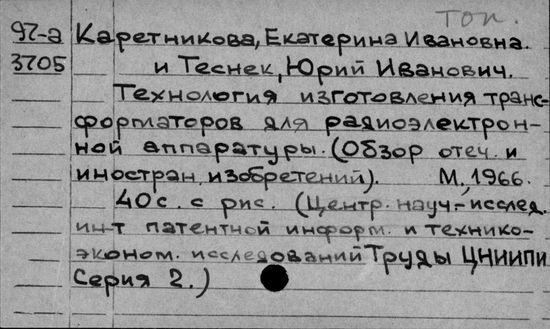 Доп.
97-а Каретникова, Екатерина Ивановна.
3705 и Теснек, Юрий Иванович.
Технология изготовления транс-
форматоров для радиоэлектрон-
ной аппаратуры. (Обзор отеч. и
иностран. изобретений). М., 1966.
40 с. с рис. (Центр. науч.-исслед.
ин-т патентной информ. и технико-
эконом. исследований Труды ЦНИИПИ
Серия 2.)